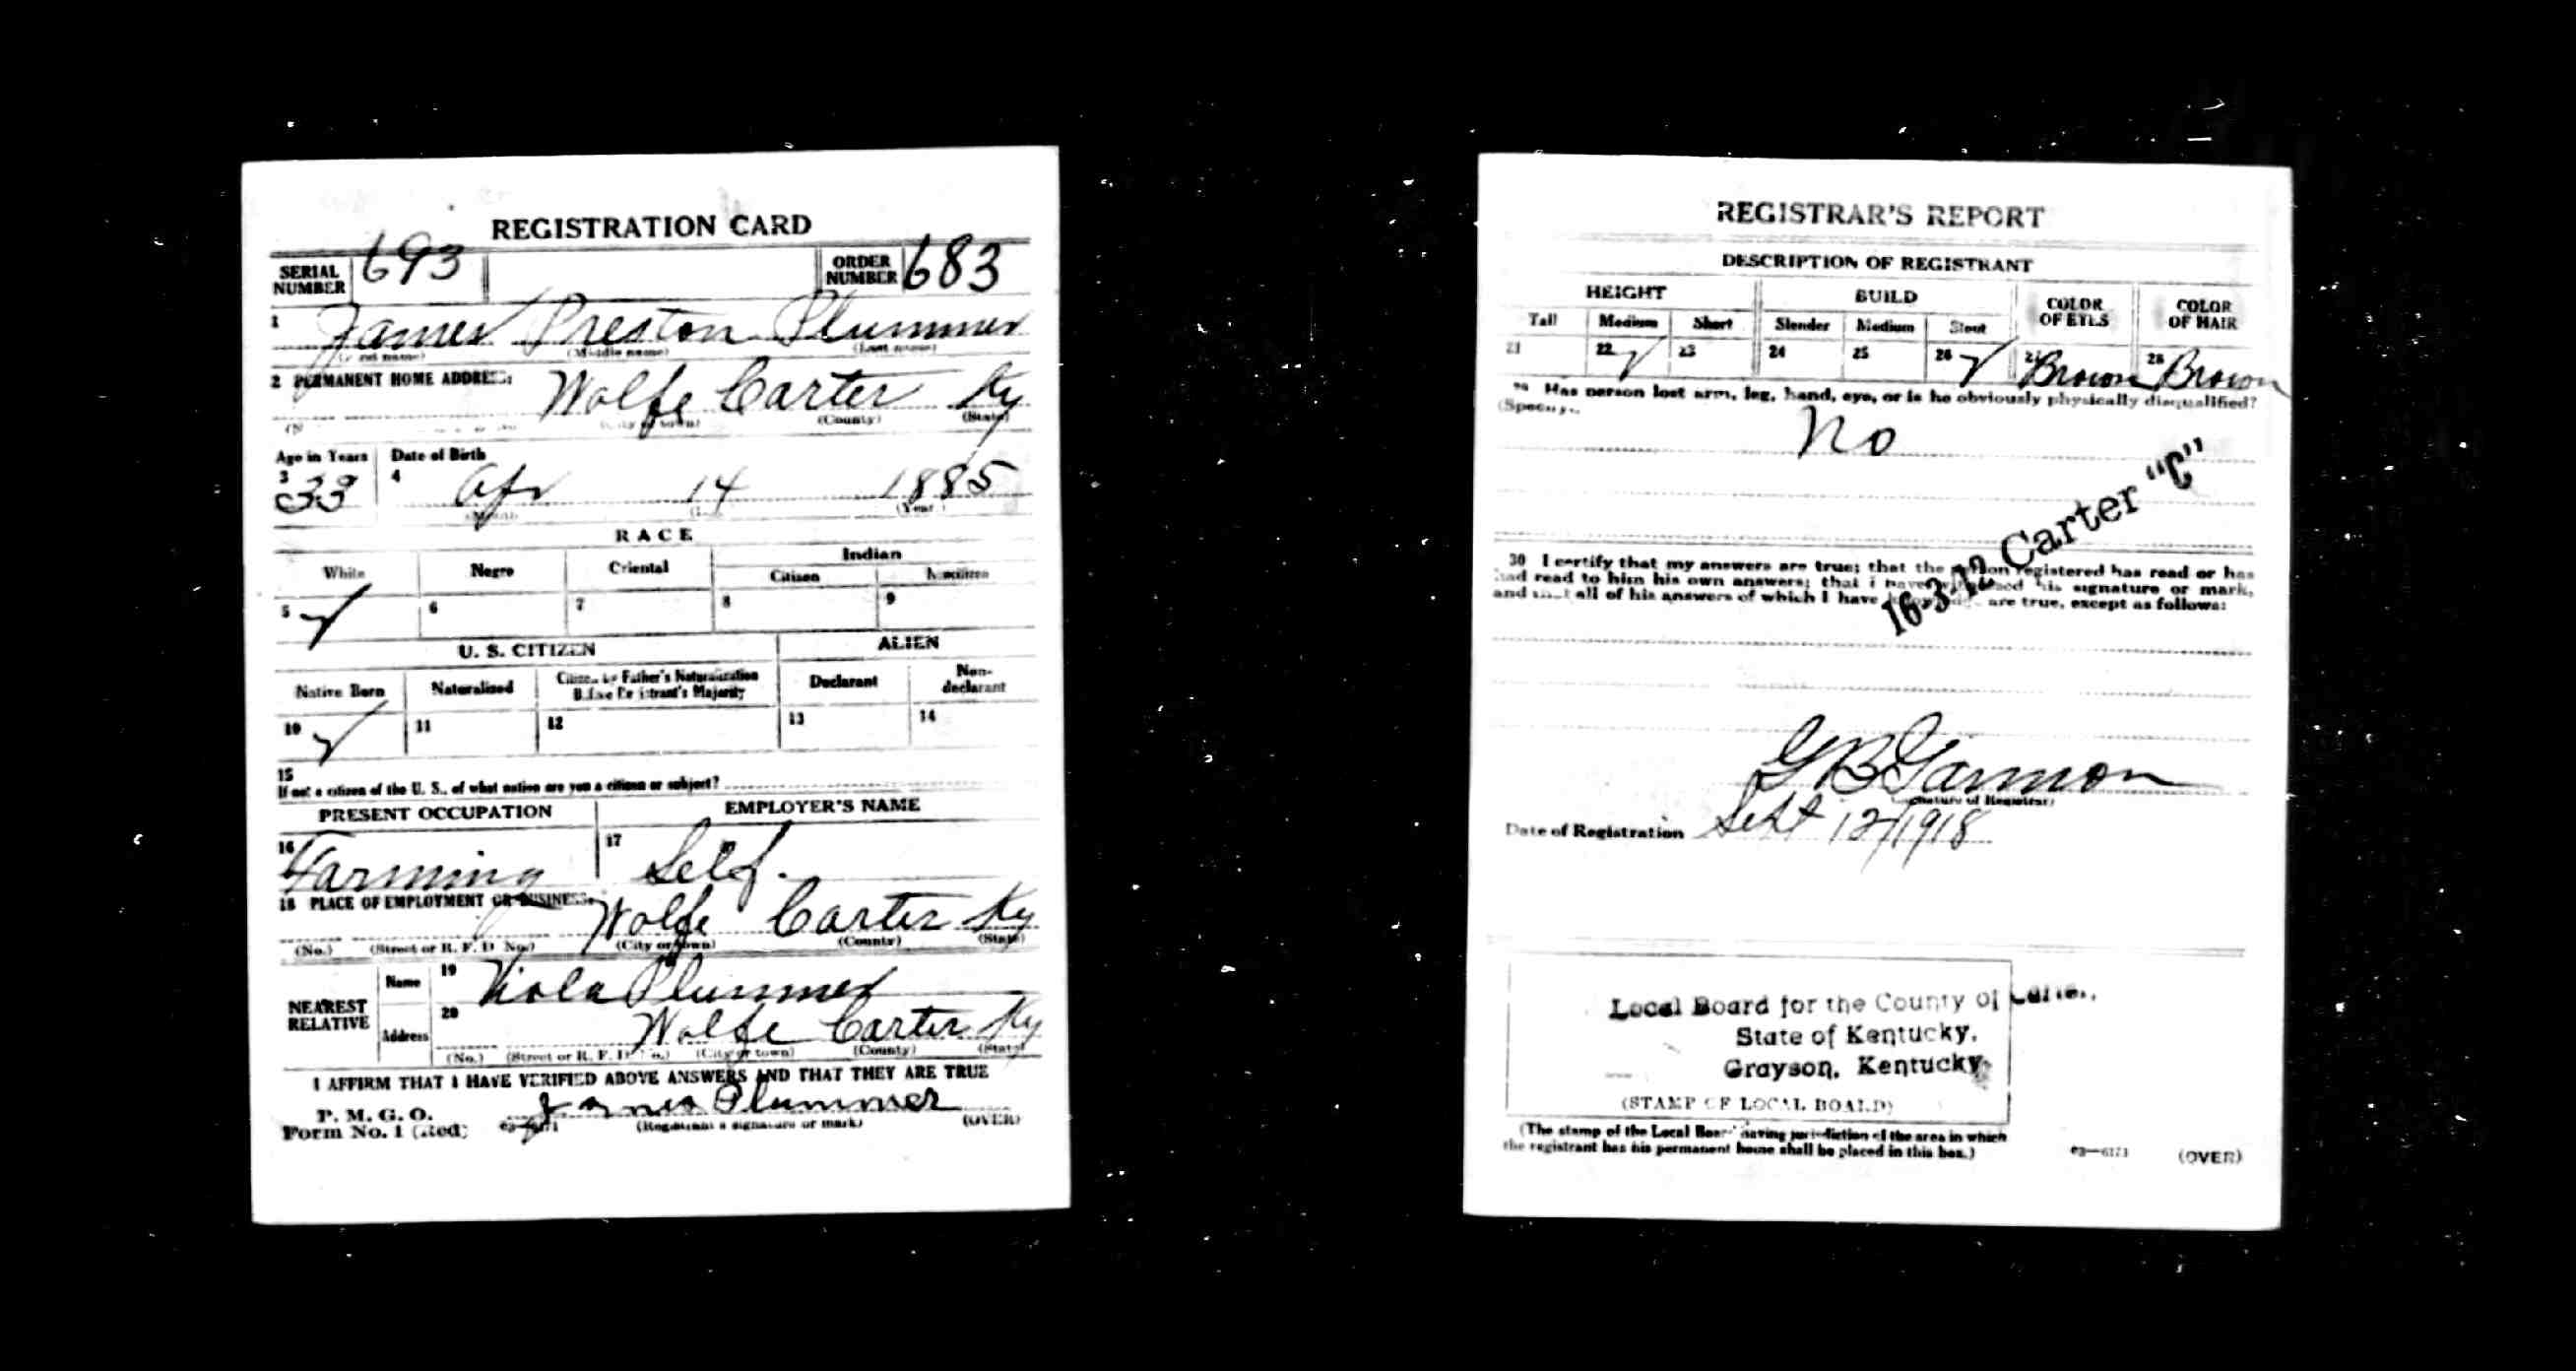 REGISTRATION CARD
SERIAL NUMBER 693 ORDER NUMBER 683
1 James Preston Plummer
(Middle name) (Last name)
2 PERMANENT HOME ADDRESS:
Wolfe Carter Ky
(County) (State)
Age in Years Date of Birth
3 33 4 Apr 14 1885
(Month) (Year)
RACE
White Negro Oriental Indian
Citizen Noncitizen
5 ✓ 6 7 8 9
U. S. CITIZEN ALIEN
Native Born Naturalized Citizen by Father's Naturalization Before Registrant's Majority Declarant Non-declarant
10 ✓ 11 12 13 14
15
If not a citizen of the U. S., of what nation are you a citizen or subject?
PRESENT OCCUPATION EMPLOYER'S NAME
16 Farming 17 Self.
18 PLACE OF EMPLOYMENT OR BUSINESS:
Wolfe Carter Ky
(No.) (Street or R. F. D. No.) (City or town) (County) (State)
NEAREST RELATIVE Name 19 Viola Plummer
Address 20 Wolfe Carter Ky
(No.) (Street or R. F. D. No.) (City or town) (County) (State)
I AFFIRM THAT I HAVE VERIFIED ABOVE ANSWERS AND THAT THEY ARE TRUE
P. M. G. O.
Form No. 1 (Red) James Plummer
(Registrant's signature or mark) (OVER)
REGISTRAR'S REPORT
DESCRIPTION OF REGISTRANT
HEIGHT BUILD COLOR OF EYES COLOR OF HAIR
Tall Medium Short Slender Medium Stout
21 22 ✓ 23 24 25 26 ✓ 27 Brown 28 Brown
29 Has person lost arm, leg, hand, eye, or is he obviously physically disqualified?
(Specify).
No
16-3-12 Carter "C"
30 I certify that my answers are true; that the person registered has read or has
had read to him his own answers; that I have witnessed his signature or mark,
and that all of his answers of which I have knowledge are true, except as follows:
G B Garmon
(Signature of Registrar)
Date of Registration Sept 12/1918
Local Board for the County of Carter,
State of Kentucky,
Grayson, Kentucky
(STAMP OF LOCAL BOARD)
(The stamp of the Local Board having jurisdiction of the area in which
the registrant has his permanent home shall be placed in this box.)
03—6171 (OVER)